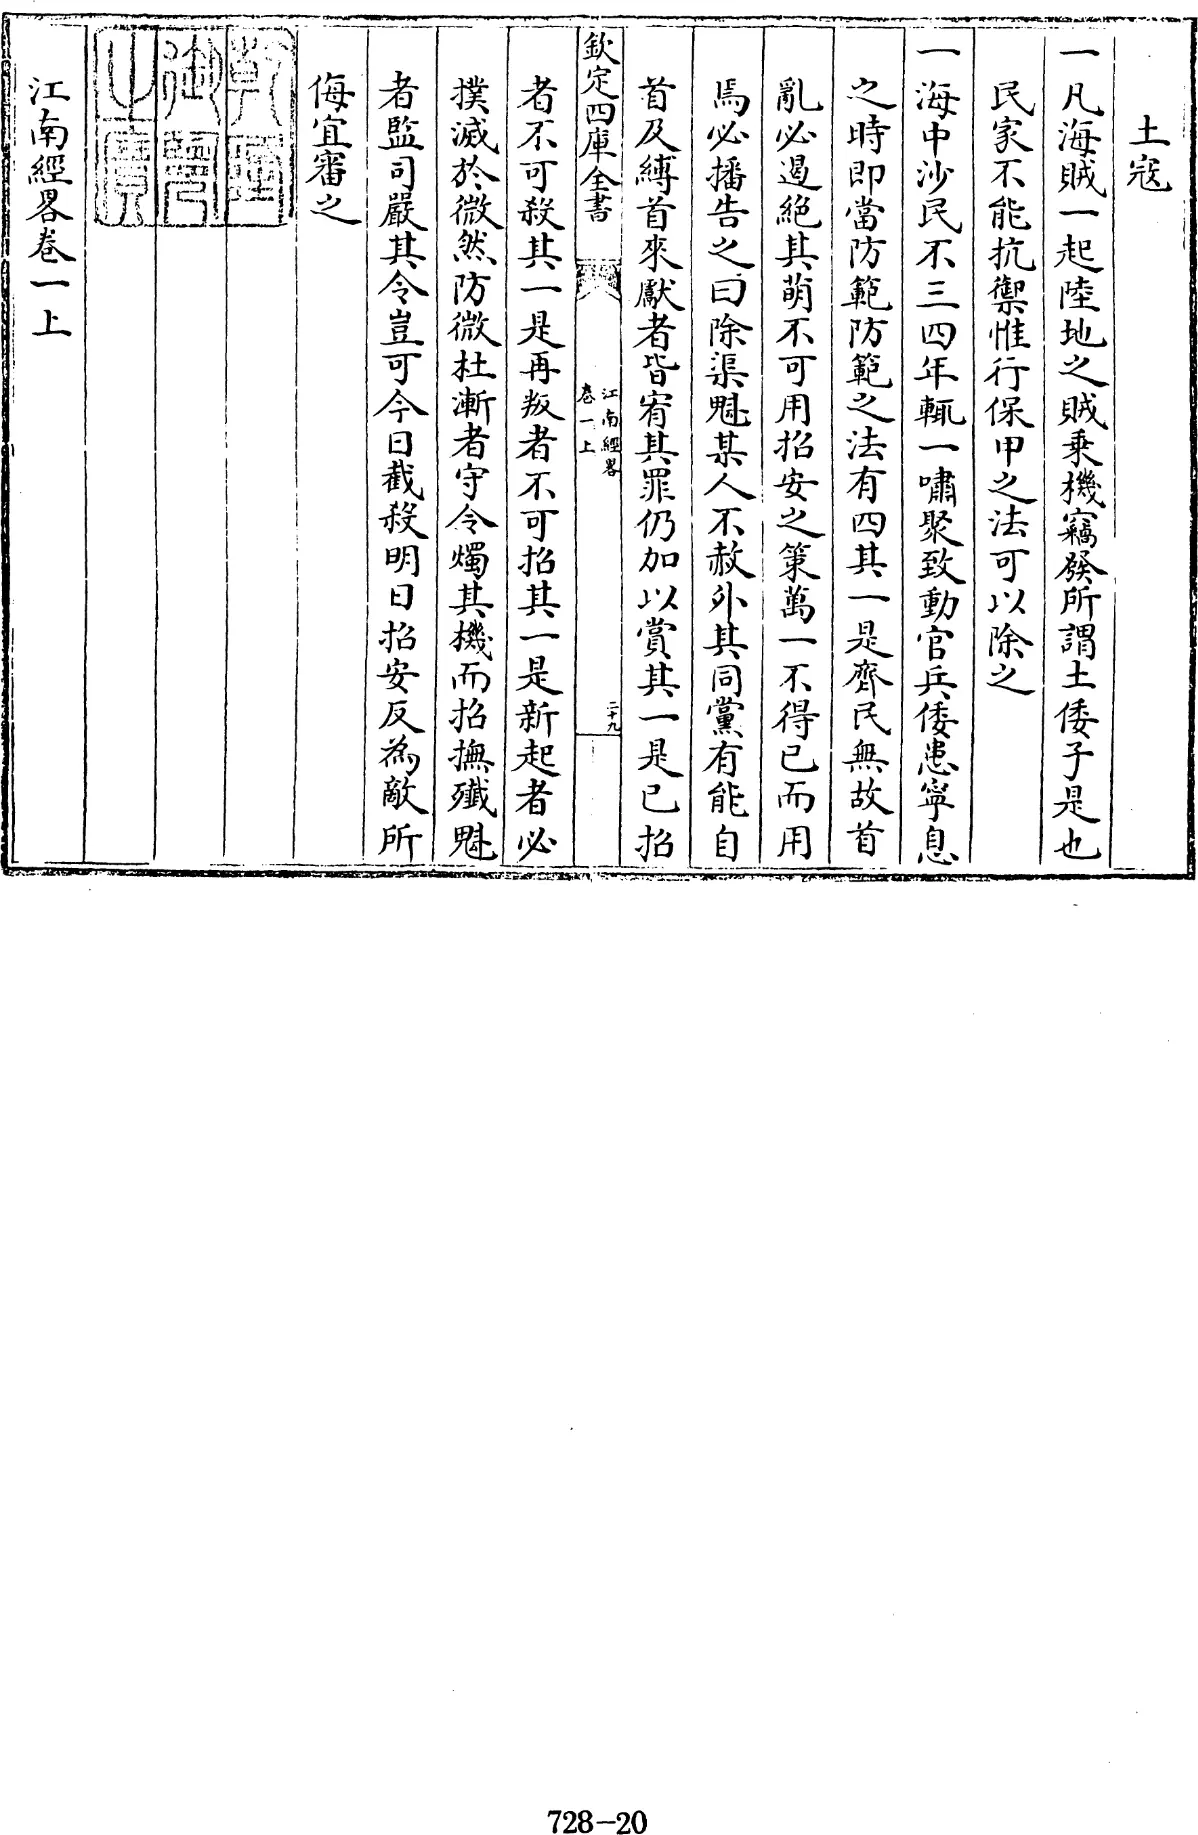 土寇
一凡海賊一起陸地之賊乘機竊發所謂土倭子是也
民家不能抗禦惟行保甲之法可以除之
一海中沙民不三四年輒一嘯聚致動官兵倭患寧息
之時即當防範防範之法有四其一是齊民無故首
亂必遏絕其萌不可用招安之策萬一不得已而用
焉必播告之曰除渠魁某人不赦外其同黨有能自
首及縛首來獻者皆宥其罪仍加以賞其一是已招
欽定四庫全書
江南經畧
卷一上
二十九
者不可殺其一是再叛者不可招其一是新起者必
撲滅於微然防微杜漸者守令燭其機而招撫殲魁
者監司嚴其令豈可今日截殺明日招安反為敵所
侮宜審之
乾隆
御覽
之寶
江南經畧卷一上
728-20